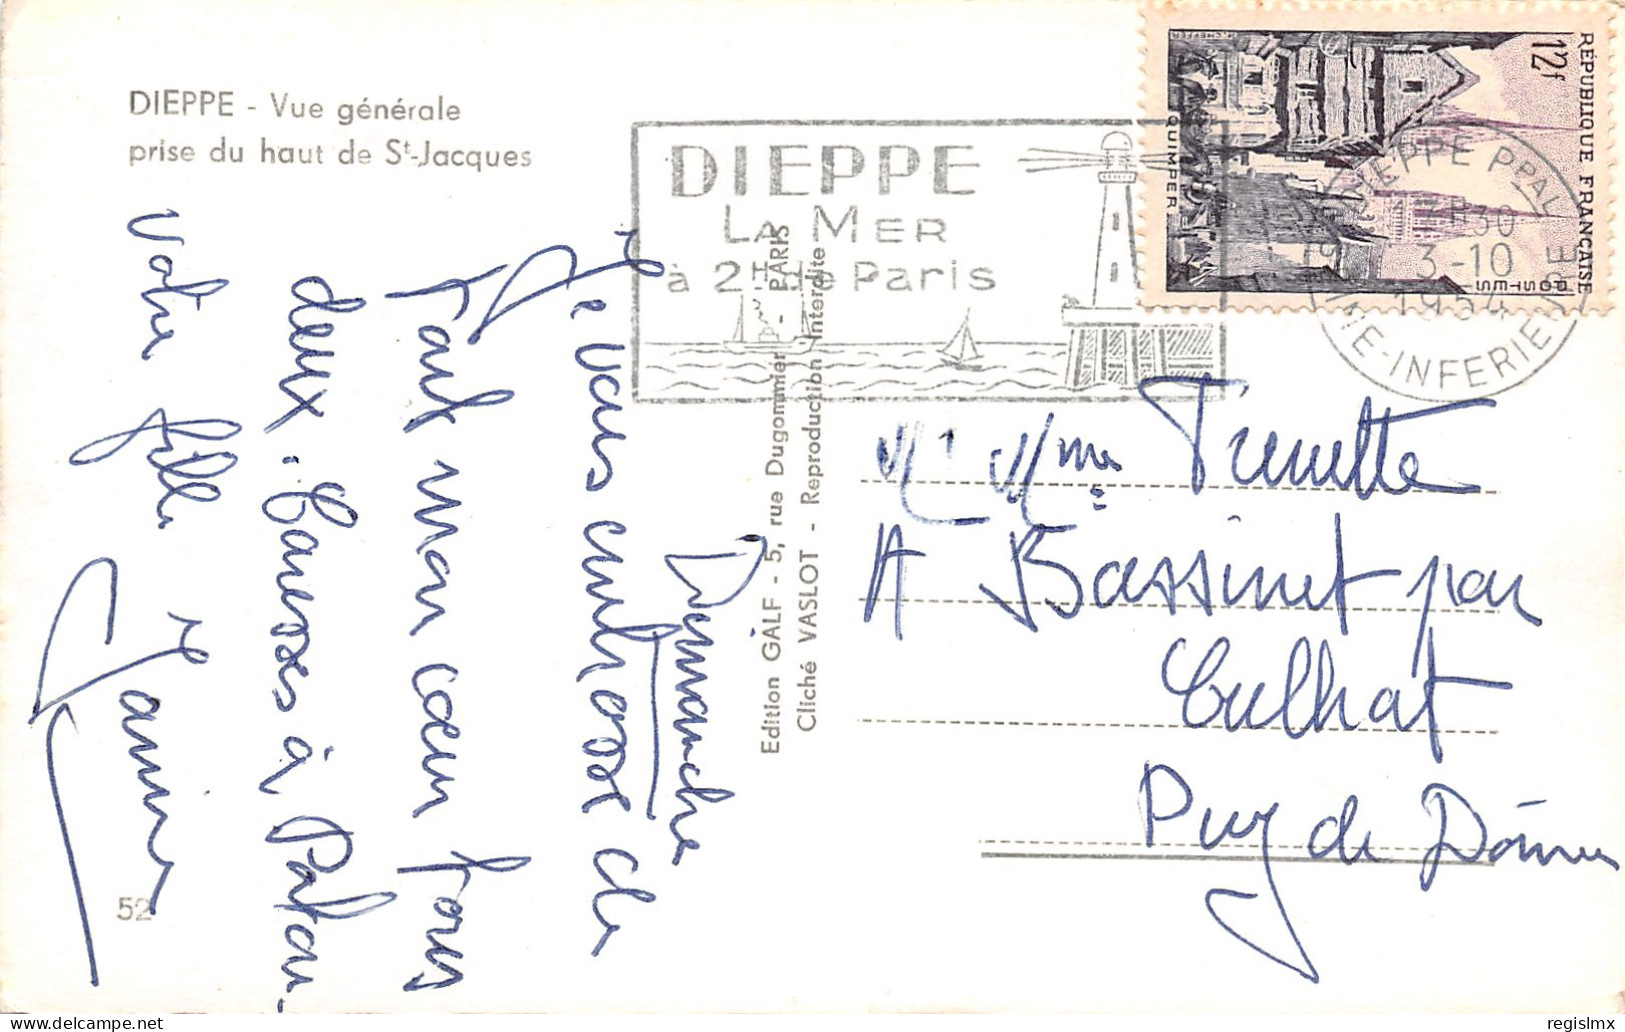 DIEPPE - Vue générale
prise du haut de St-Jacques
DIEPPE
LA MER
à 2H de Paris
RÉPUBLIQUE FRANÇAISE
12f
POSTES
QUIMPER
DIEPPE PPAL
30
3-10
1954
INFERIEURE
Edition GALF - 5, rue Dugommier - PARIS
Cliché VASLOT - Reproduction Interdite
Dimanche
Je vous embrasse de
tout mon cœur tous
deux. Caresses à Patou.
Votre fille
Janine
Mr Mme
A Bassinet par
Culhat
Puy de Dôme
52
delcampe.net
regislmx